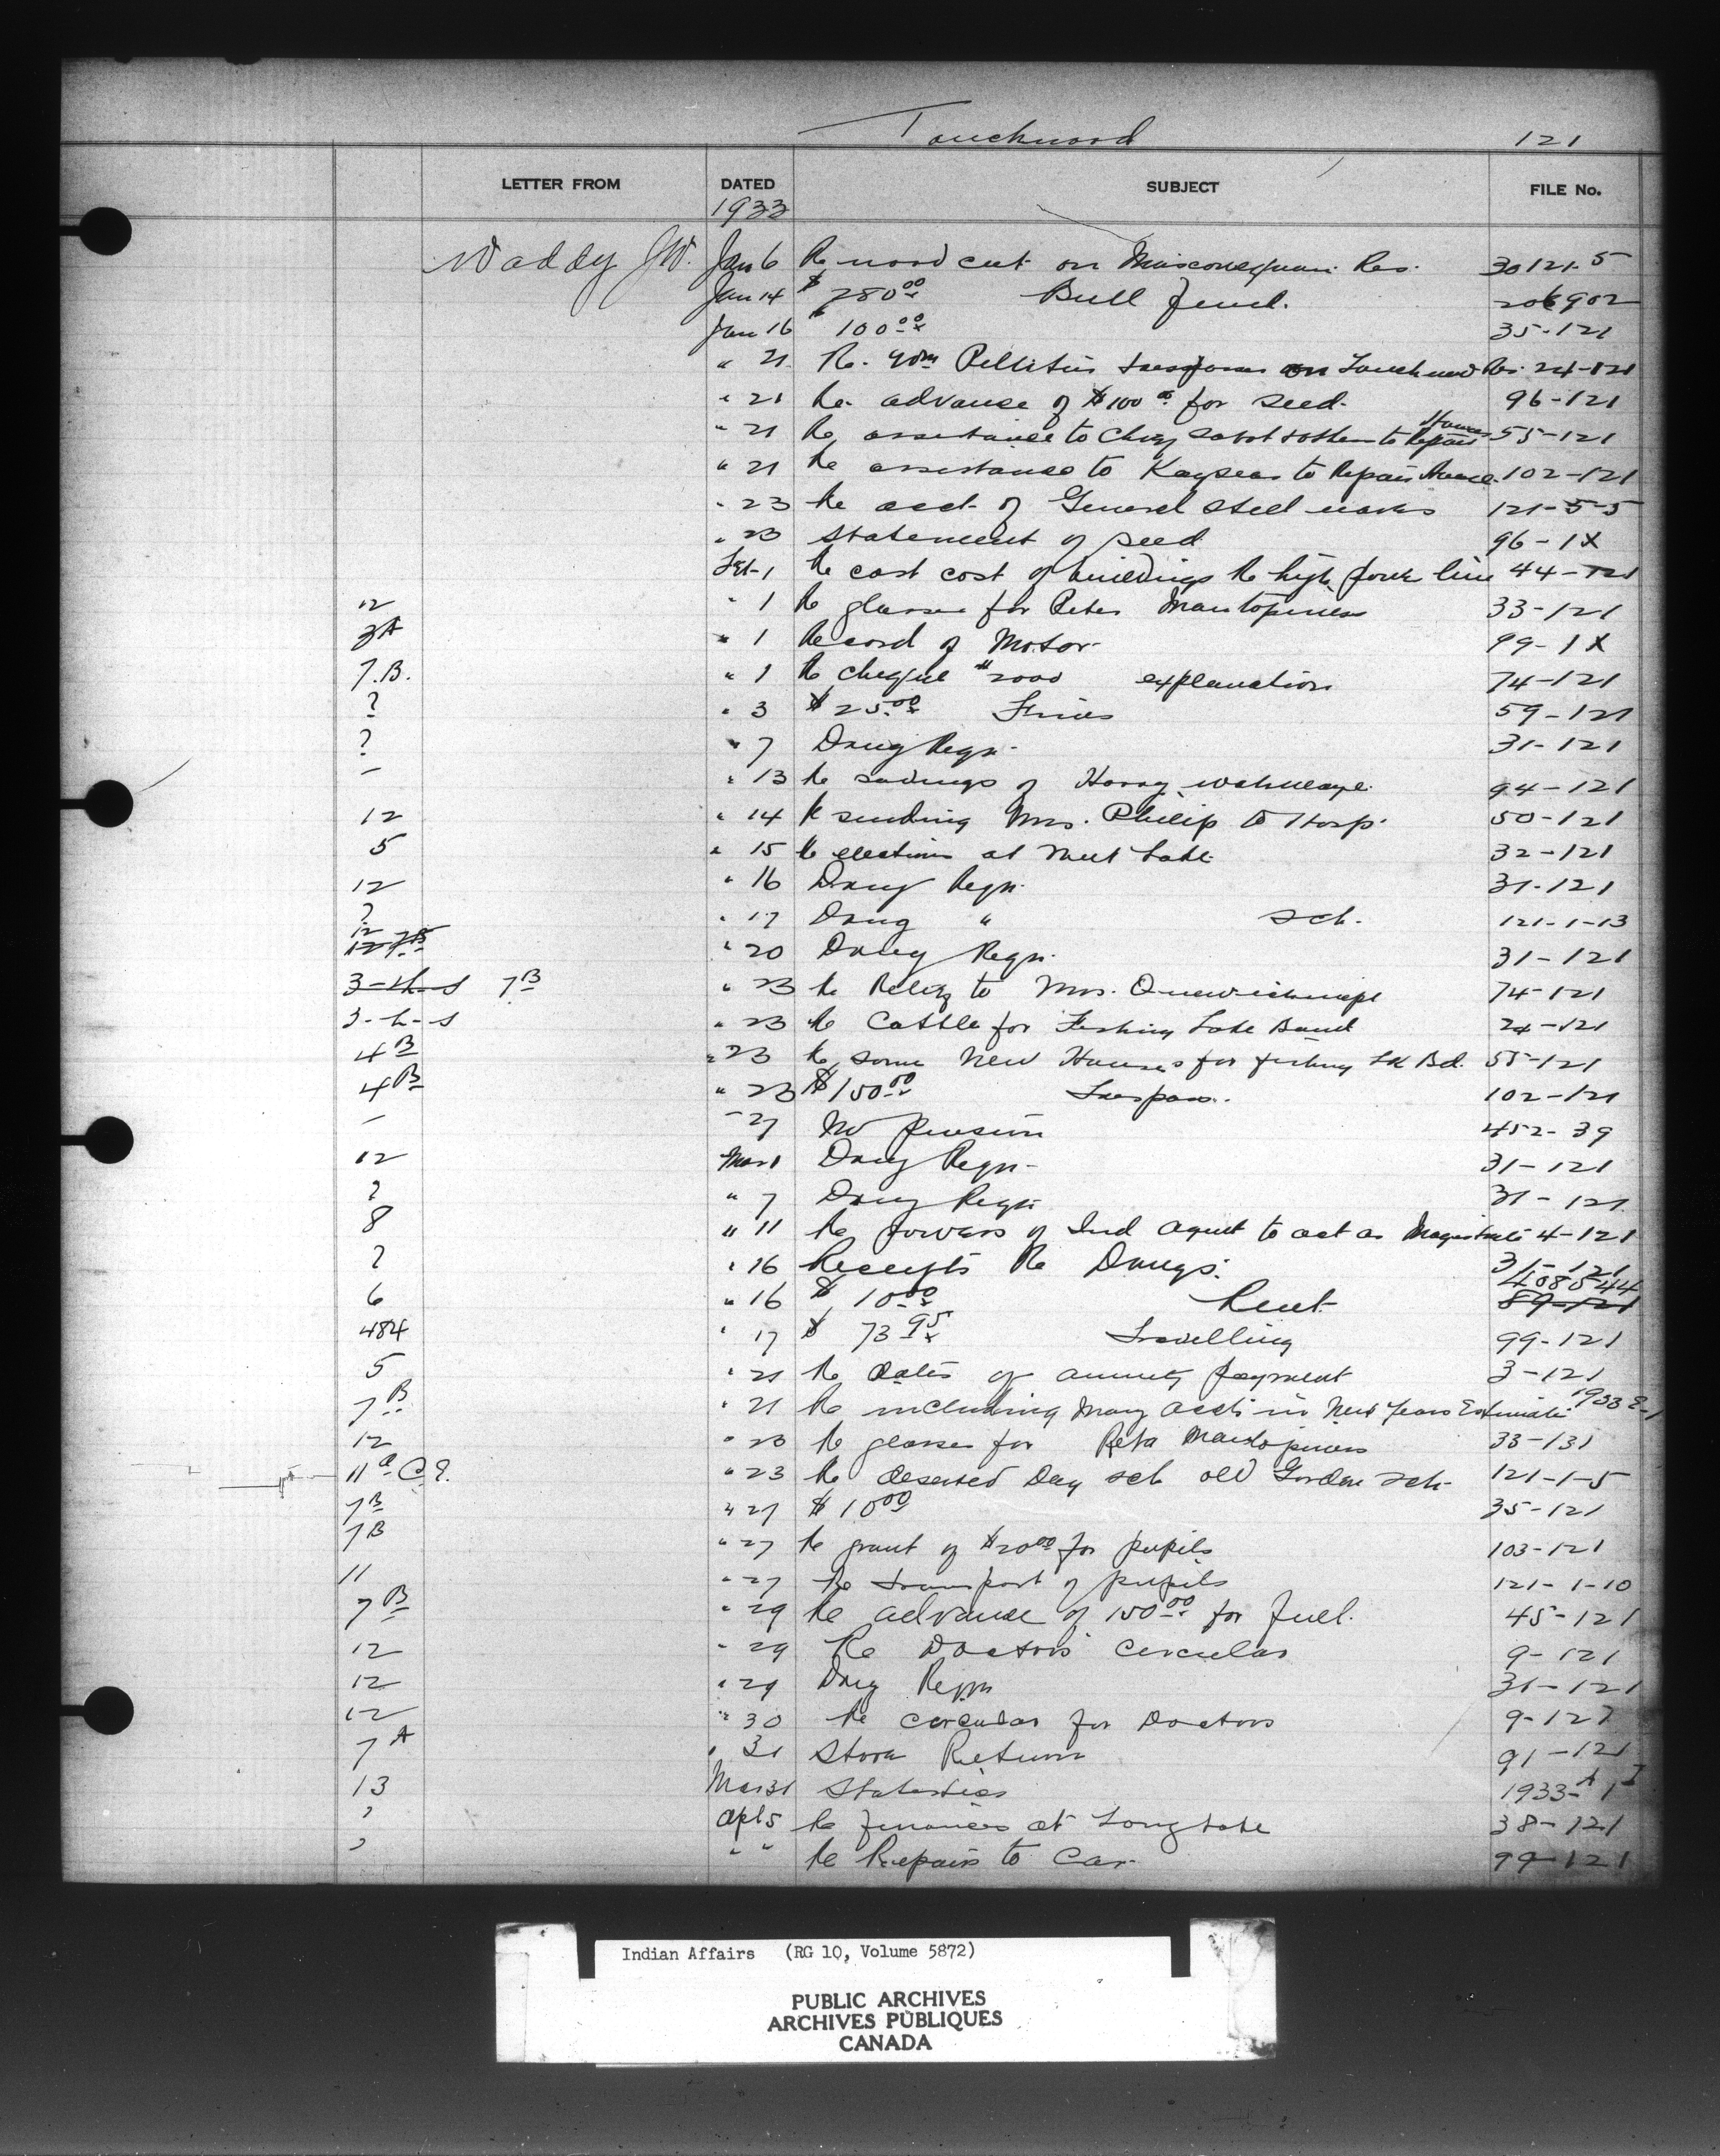 Touchwood 121
LETTER FROM DATED SUBJECT FILE No.
1933
Waddy JW. Jan 6 Re wood cut on Res. 30121-5
Jan 14 $ 280.00 Bull fund. 206902
Jan 16 " 100.00 35-121
" 21 Re. Wm Pelletier trespass on Touchwood Res. 24-121
" 21 Re. advance of $100.00 for seed. 96-121
" 21 Re assistance to Chief to Repair Houses 55-121
" 21 Re assistance to Kayseas to Repair House. 102-121
" 23 Re acct of General Steel wares 121-5-5
" 23 Statement of seed 96-1X
Feb-1 Re cost cost of buildings Re high power line 44-121
12 " 1 Re glasses for Peter 33-121
3A " 1 Record of Motor- 99-1X
7.B. " 1 Re cheque #2000 explanation 74-121
? " 3 $25.00 Fines 59-121
? " 7 Drug Reqn- 31-121
- " 13 Re savings of Harry 94-121
12 " 14 Re sending Mrs. Philip to Hosp. 50-121
5 " 15 Re elections at Nut Lake 32-121
12 " 16 Drug Reqn. 31-121
? " 17 Drug " sch. 121-1-13
12 12 7B " 20 Drug Reqn. 31-121
3-h-s 7B " 23 Re Relief to Mrs. 74-121
3-h-s " 23 Re Cattle for Fishing Lake Band 24-121
4B " 23 Re some New Houses for fishing Lk Bd. 55-121
4B " 23 $150.00 Trespass. 102-121
- " 27 No pension 452-39
12 Mar 1 Drug Reqn- 31-121
? " 7 Drug Reqn 31-121
8 " 11 Re powers of Ind Agent to act as Magistrate 4-121
? " 16 Receipts Re Drugs. 31-121
408544
6 " 16 $ 10.00 Rent 89-121
484 " 17 $ 73.95 Travelling 99-121
5 " 21 Re dates of annuity payment 3-121
7B " 21 Re including many accts in New Years Estimates 1933 E-1
12 " 23 Re glasses for 33-131
11a C.E. " 23 Re deserted Day sch old Gordon sch- 121-1-5
7B " 27 $10.00 35-121
7B " 27 Re grant of $20.00 for pupils 103-121
11 " 27 Re transport of pupils 121-1-10
7B " 29 Re advance of 150.00 for fuel. 45-121
12 " 29 Re Doctors circular 9-121
12 " 29 Drug Reqn 31-121
12 " 30 Re circular for Doctors 9-121
7A " 31 Store Return 91-121
13 Mar 31 Statistics 1933-A 1 I
? Apl 5 Re finances at Long Lake 38-121
? " " Re Repairs to Car- 99-121
Indian Affairs (RG 10, Volume 5872)
PUBLIC ARCHIVES
ARCHIVES PUBLIQUES
CANADA